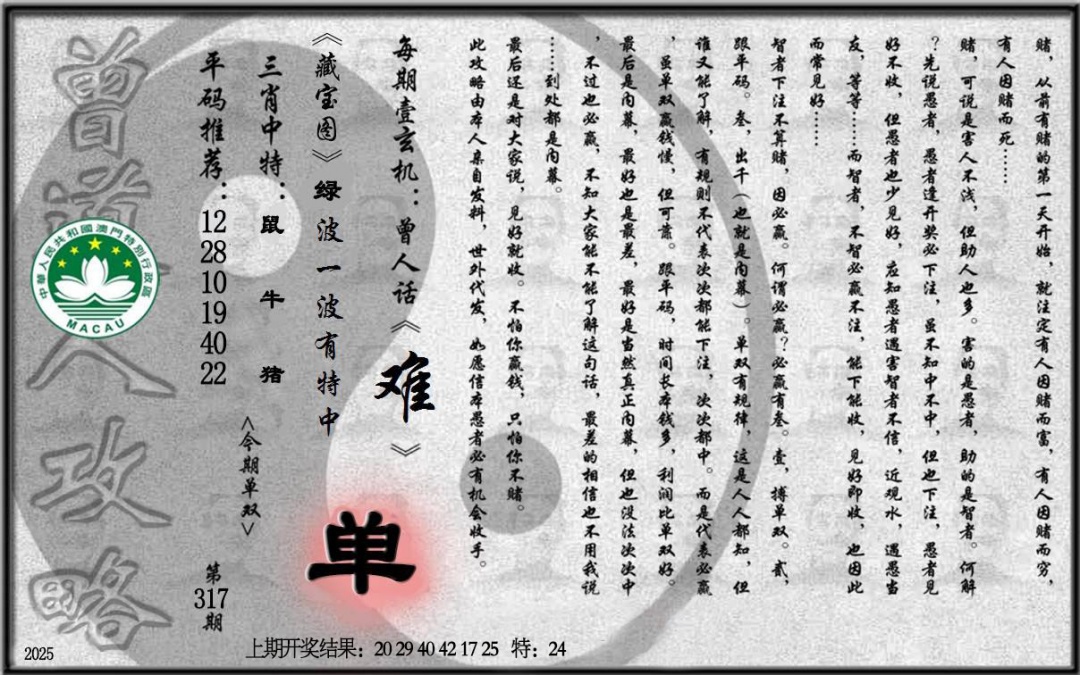 赌，从前有赌的第一天开始，就注定有人因赌而富，有人因赌而穷，
有人因赌而死……
赌，可说是害人不浅，但助人也多。害的是愚者，助的是智者。何解
？先说愚者，愚者逢开奖必下注，虽不知中不中，但也下注，愚者见
好不收，但愚者也少见好，应知愚者遇害智者不信，近观水，遇愚当
友，等等……而智者，不智必赢不注，能下能收，见好即收，也因此
而常见好……
智者下注不算赌，因必赢。何谓必赢？必赢有叁。壹，搏单双。贰，
跟单码。叁，出千（也就是内幕）。单双有规律，这是人人都知，但
谁又能了解，有规则不代表次次都能下注，次次都中。而是代表必赢
，虽单双赢钱慢，但可靠。跟单码，时间长本钱多，利润比单双好。
最后是内幕，最好也是最差，最好是当然真正内幕，但也没法次次中
，不过也必赢，不知大家能不能了解这句话，最差的相信也不用我说
……到处都是内幕。
最后还是对大家说，见好就收。不怕你赢钱，只怕你不赌。
此攻略由本人亲自发料，世外代发，如愿信本愚者必有机会收手。
每期壹玄机：曾人话《难》
《藏宝图》绿波一波有特中
单
三肖中特：鼠 牛 猪
<今期单双>
平码推荐：12 28 10 19 40 22
第317期
曾道人攻略
中華人民共和國澳門特別行政區
MACAU
2025
上期开奖结果：20 29 40 42 17 25 特：24